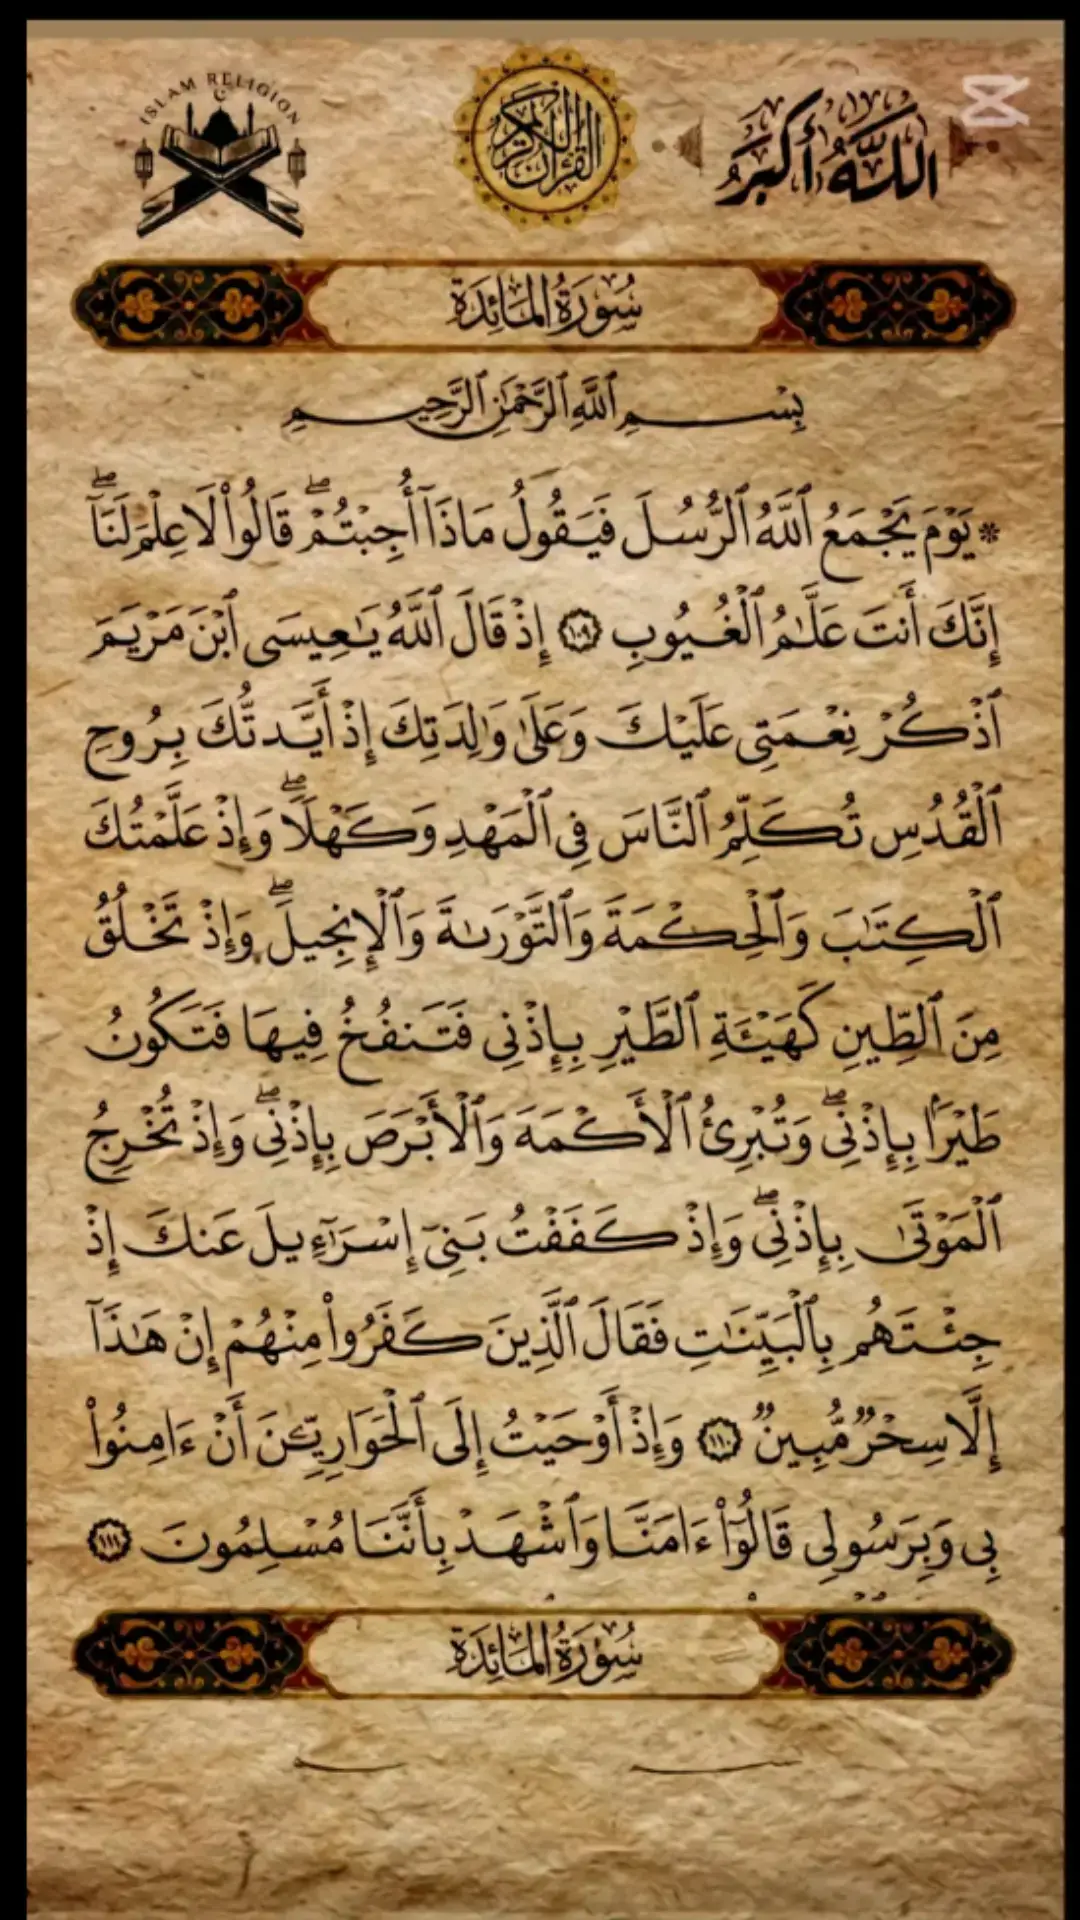 ISLAM RELIGION
القرآن الكريم
اللَّهُ أَكْبَرُ
سُورَةُ المَائِدَة
بِسْمِ ٱللَّهِ ٱلرَّحْمَٰنِ ٱلرَّحِيمِ
* يَوْمَ يَجْمَعُ ٱللَّهُ ٱلرُّسُلَ فَيَقُولُ مَاذَآ أُجِبْتُمْۖ قَالُوا۟ لَا عِلْمَ لَنَآۖ
إِنَّكَ أَنتَ عَلَّٰمُ ٱلْغُيُوبِ ١٠٩ إِذْ قَالَ ٱللَّهُ يَٰعِيسَى ٱبْنَ مَرْيَمَ
ٱذْكُرْ نِعْمَتِى عَلَيْكَ وَعَلَىٰ وَٰلِدَتِكَ إِذْ أَيَّدتُّكَ بِرُوحِ
ٱلْقُدُسِ تُكَلِّمُ ٱلنَّاسَ فِى ٱلْمَهْدِ وَكَهْلًاۖ وَإِذْ عَلَّمْتُكَ
ٱلْكِتَٰبَ وَٱلْحِكْمَةَ وَٱلتَّوْرَىٰةَ وَٱلْإِنجِيلَۖ وَإِذْ تَخْلُقُ
مِنَ ٱلطِّينِ كَهَيْـَٔةِ ٱلطَّيْرِ بِإِذْنِى فَتَنفُخُ فِيهَا فَتَكُونُ
طَيْرًۢا بِإِذْنِىۖ وَتُبْرِئُ ٱلْأَكْمَهَ وَٱلْأَبْرَصَ بِإِذْنِىۖ وَإِذْ تُخْرِجُ
ٱلْمَوْتَىٰ بِإِذْنِىۖ وَإِذْ كَفَفْتُ بَنِىٓ إِسْرَٰٓءِيلَ عَنكَ إِذْ
جِئْتَهُم بِٱلْبَيِّنَٰتِ فَقَالَ ٱلَّذِينَ كَفَرُوا۟ مِنْهُمْ إِنْ هَٰذَآ
إِلَّا سِحْرٌ مُّبِينٌ ١١٠ وَإِذْ أَوْحَيْتُ إِلَى ٱلْحَوَارِيِّـۧنَ أَنْ ءَامِنُوا۟
بِى وَبِرَسُولِى قَالُوٓا۟ ءَامَنَّا وَٱشْهَدْ بِأَنَّنَا مُسْلِمُونَ ١١١
سُورَةُ المَائِدَة